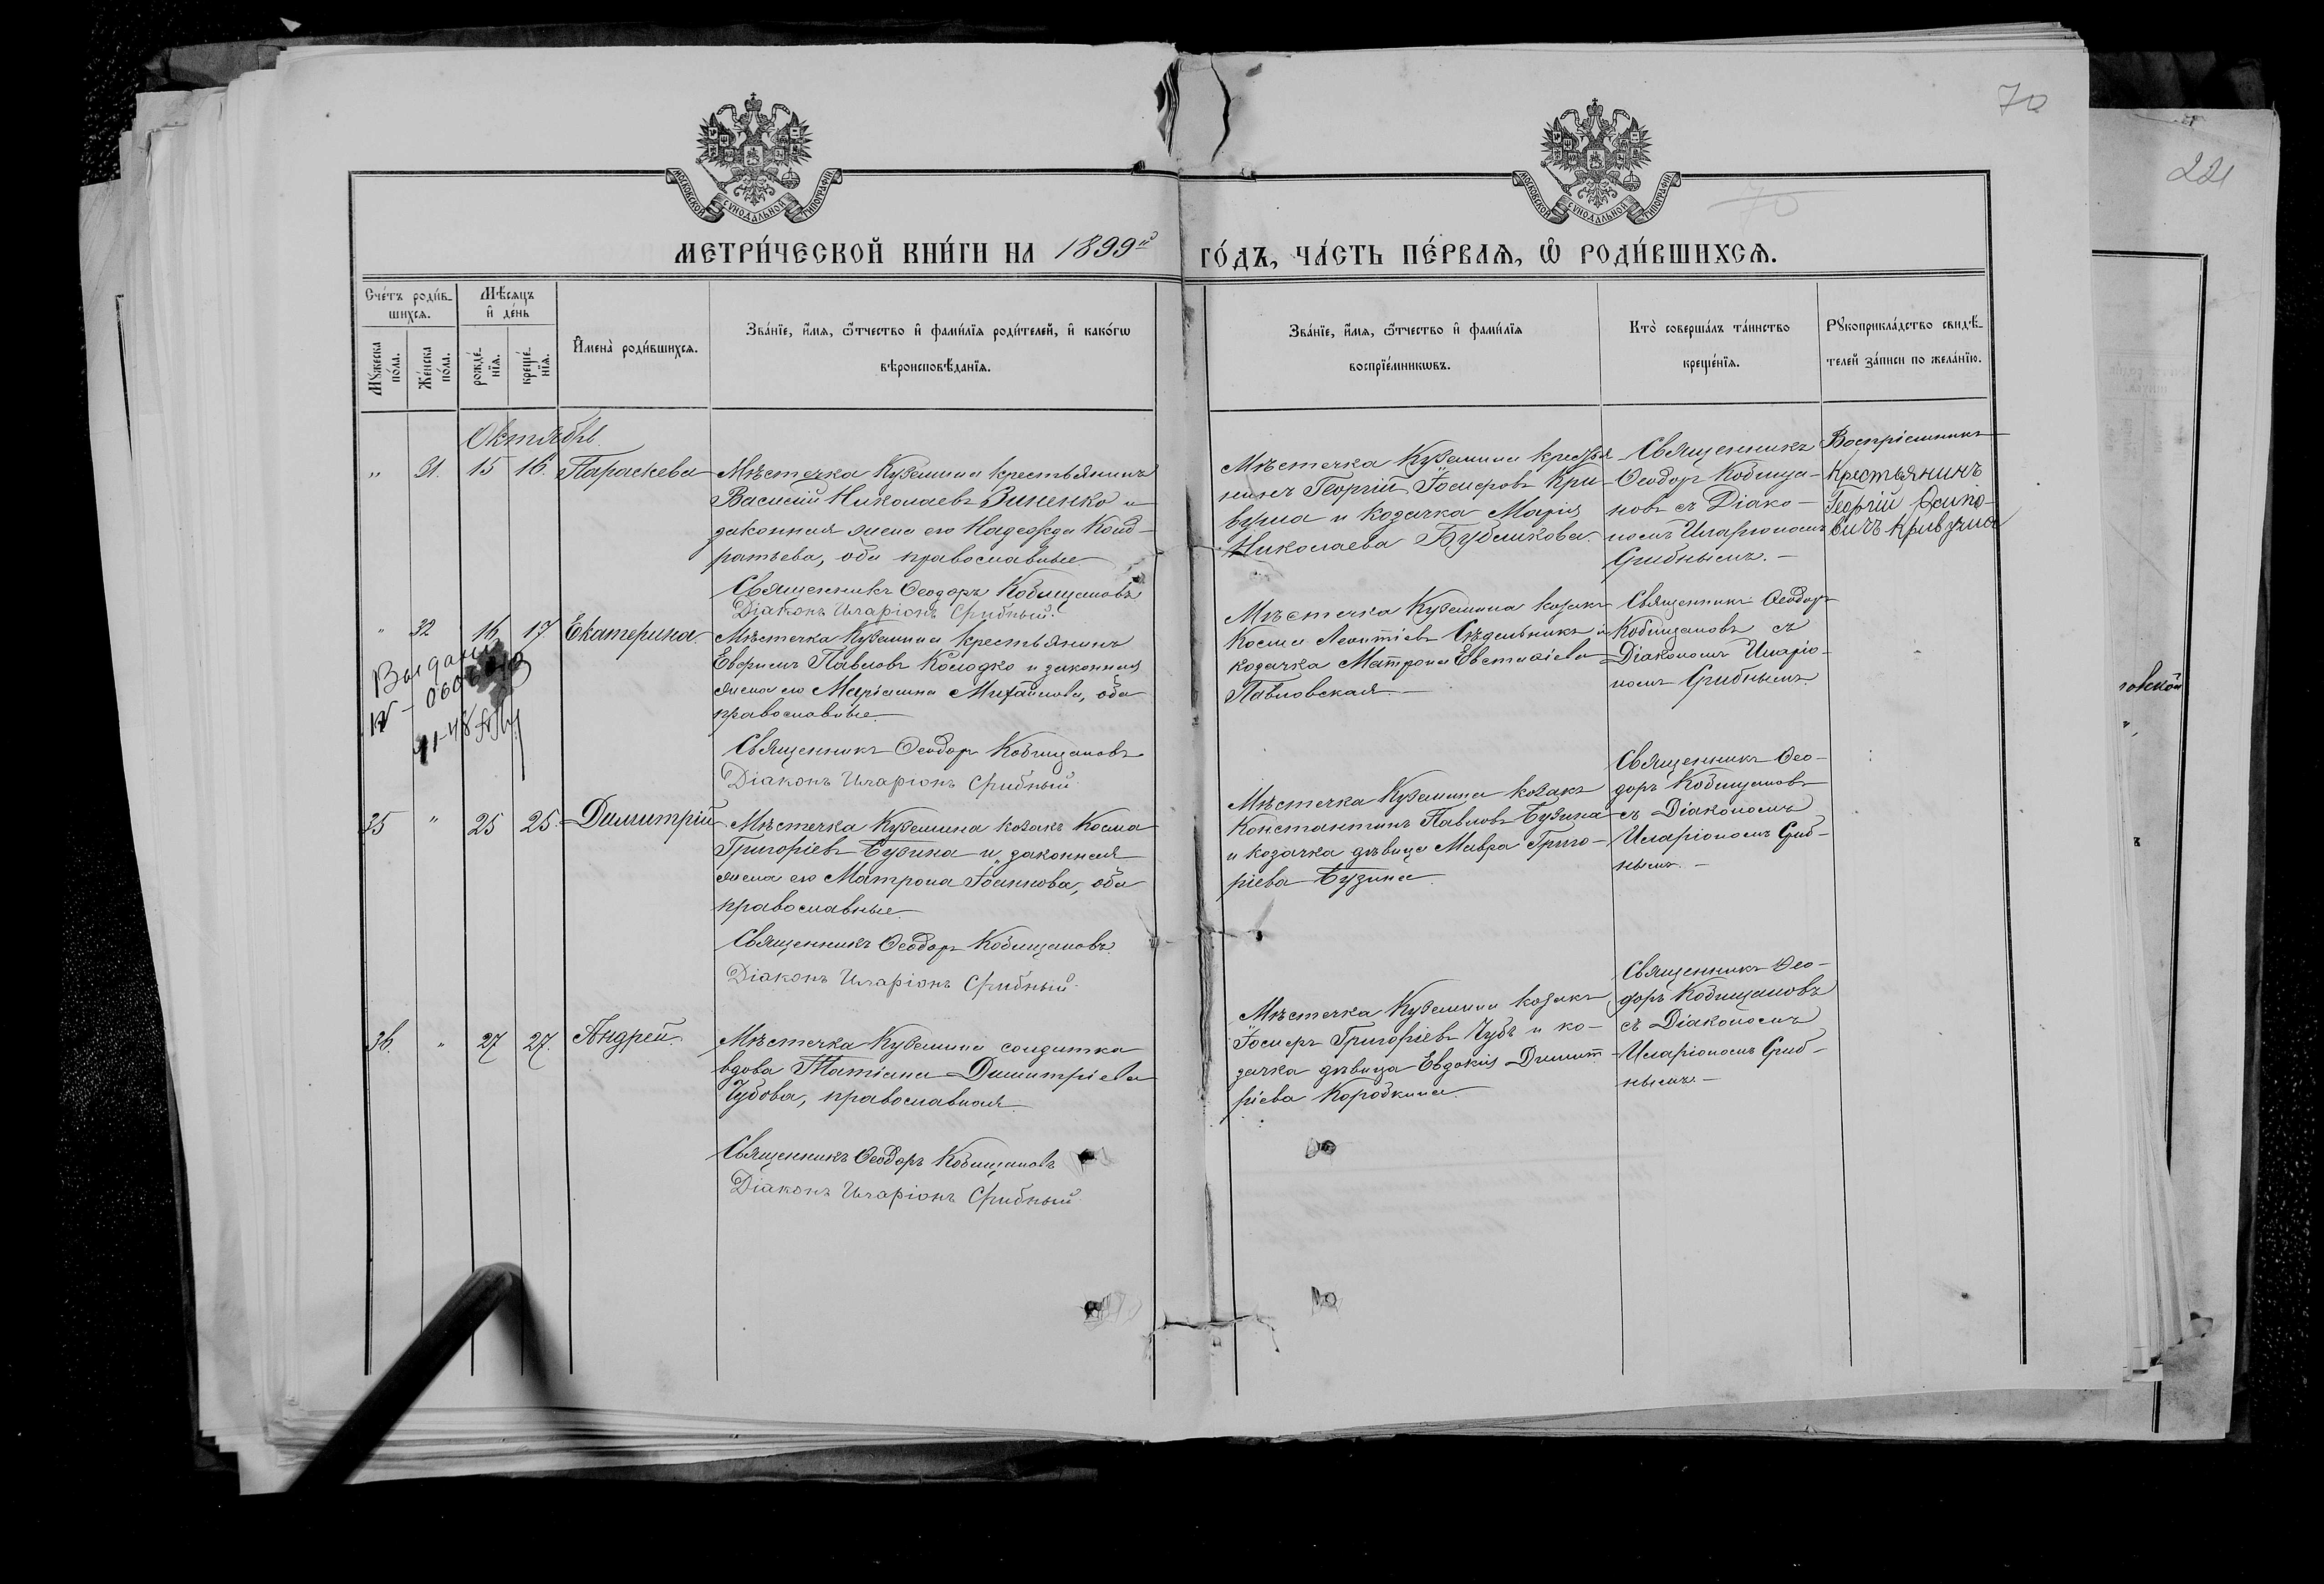 70
221
МОСКОВСКОЙ СѴНОДАЛЬНОЙ ТИПОГРАФІИ
МОСКОВСКОЙ СѴНОДАЛЬНОЙ ТИПОГРАФІИ
70
МЕТРИ́ЧЕСКОЙ КНИ́ГИ НА 1899й ГО́ДЪ, ЧА́СТЬ ПЕ́РВАѦ, Ѡ҆ РОДИ́ВШИХСѦ.
Сче́тъ роди́в-
шихсѧ.
Мѣ́сѧцъ
и҆ де́нь
Мꙋ́жеска
по́ла.
Же́нска
по́ла.
рожде́-
нїѧ.
креще́-
нїѧ.
И҆мена̀ роди́вшихсѧ.
Зва́нїе, и҆́мѧ, ѻ҆́тчество и҆ фами́лїѧ роди́телей, и҆ како́гѡ
вѣроисповѣ́данїѧ.
Зва́нїе, и҆́мѧ, ѻ҆́тчество и҆ фами́лїѧ
воспрїе́мникѡвъ.
Кто̀ соверша́лъ та́инство
креще́нїѧ.
Рꙋкоприкла́дство свидѣ́-
телей за́писи по жела́нїю.
Октябрь.
" 31. 15 16. Параскева
Мѣстечка Куземина крестьянинъ
Василій Николаевъ Зиненко и
законная жена его Надежда Конд-
ратьева, оба православные.
Священникъ Ѳеодоръ Кобищановъ
Діаконъ Иларіонъ Срибный.
Мѣстечка Куземина крестья-
нинъ Георгій Іосифовъ Кри-
вуша и козачка Марія
Николаева Бубликова.
Священникъ
Ѳеодоръ Кобища-
новъ съ Діако-
номъ Иларіономъ
Срибнымъ.
Воспріемникъ
Крестьянинъ
Георгій Осипо-
вичъ Кривуша
" 32 16 17 Екатерина
Мѣстечка Куземина крестьянинъ
Евфимъ Павловъ Колодко и законная
жена его Маріамна Михайлова, оба
православные.
Священникъ Ѳеодоръ Кобищановъ
Діаконъ Иларіонъ Срибный
Мѣстечка Куземина козакъ
Косма Леонтіевъ Сѣдельникъ и
козачка Матрона Евстафіева
Павловская.
Священникъ Ѳеодоръ
Кобищановъ съ
Діакономъ Иларіо-
номъ Срибнымъ.
35 " 25 25. Димитрій
Мѣстечка Куземина козакъ Косма
Григоріевъ Бузина и законная
жена его Матрона Іоаннова, оба
православные.
Священникъ Ѳеодоръ Кобищановъ.
Діаконъ Иларіонъ Срибный.
Мѣстечка Куземина козакъ
Константинъ Павловъ Бузина
и козачка дѣвица Мавра Григо-
ріева Бузина.
Священникъ Ѳео-
доръ Кобищановъ
съ Діакономъ
Иларіономъ Сриб-
нымъ.
36. " 27 27. Андрей.
Мѣстечка Куземина солдатка
вдова Татіана Димитріева
Чубова, православная.
Священникъ Ѳеодоръ Кобищановъ
Діаконъ Иларіонъ Срибный.
Мѣстечка Куземина козакъ
Іосифъ Григоріевъ Чубъ и ко-
зачка дѣвица Евдокія Димит-
ріева Коробкина.
Священникъ Ѳео-
доръ Кобищановъ
съ Діакономъ
Иларіономъ Сриб-
нымъ.